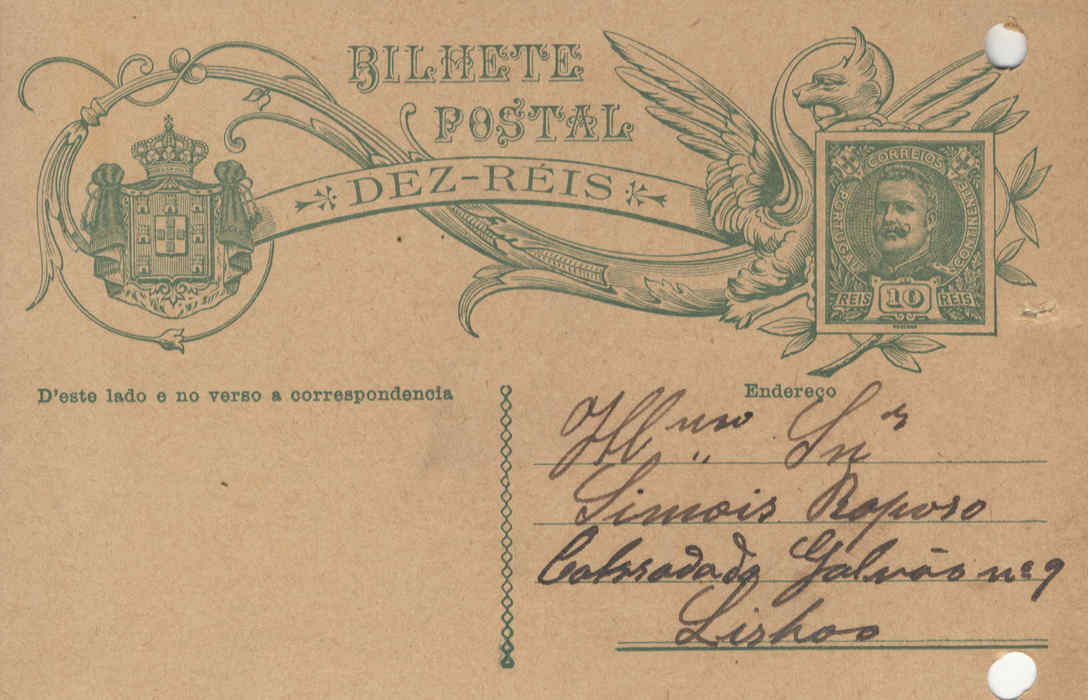 BILHETE
POSTAL
DEZ-RÉIS
CORREIOS
PORTUGAL
CONTINENTE
REIS 10 REIS
D'este lado e no verso a correspondencia
Endereço
Illmo Snr
Simois Raposo
Calssada do Galvão nº 9
Lisboa